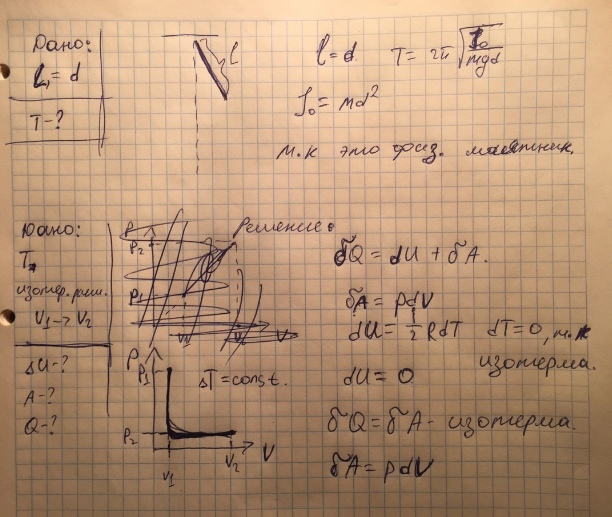 Дано:
l₁ = d
T-?
l
l = d T = 2π √(J₀/mgd)
J₀ = md²
т.к это физ. маятник.
Дано:
T
изотер. расш.
V₁ → V₂
ΔU-?
A-?
Q-?
Решение:
P
P₂
P₁
V₁
V
P
P₁
ΔT = const.
P₂
V₁
V₂
V
δQ = dU + δA.
δA = pdV
dU = i/2 RdT dT = 0, т.к
изотерма.
dU = 0
δQ = δA - изотерма.
δA = pdV